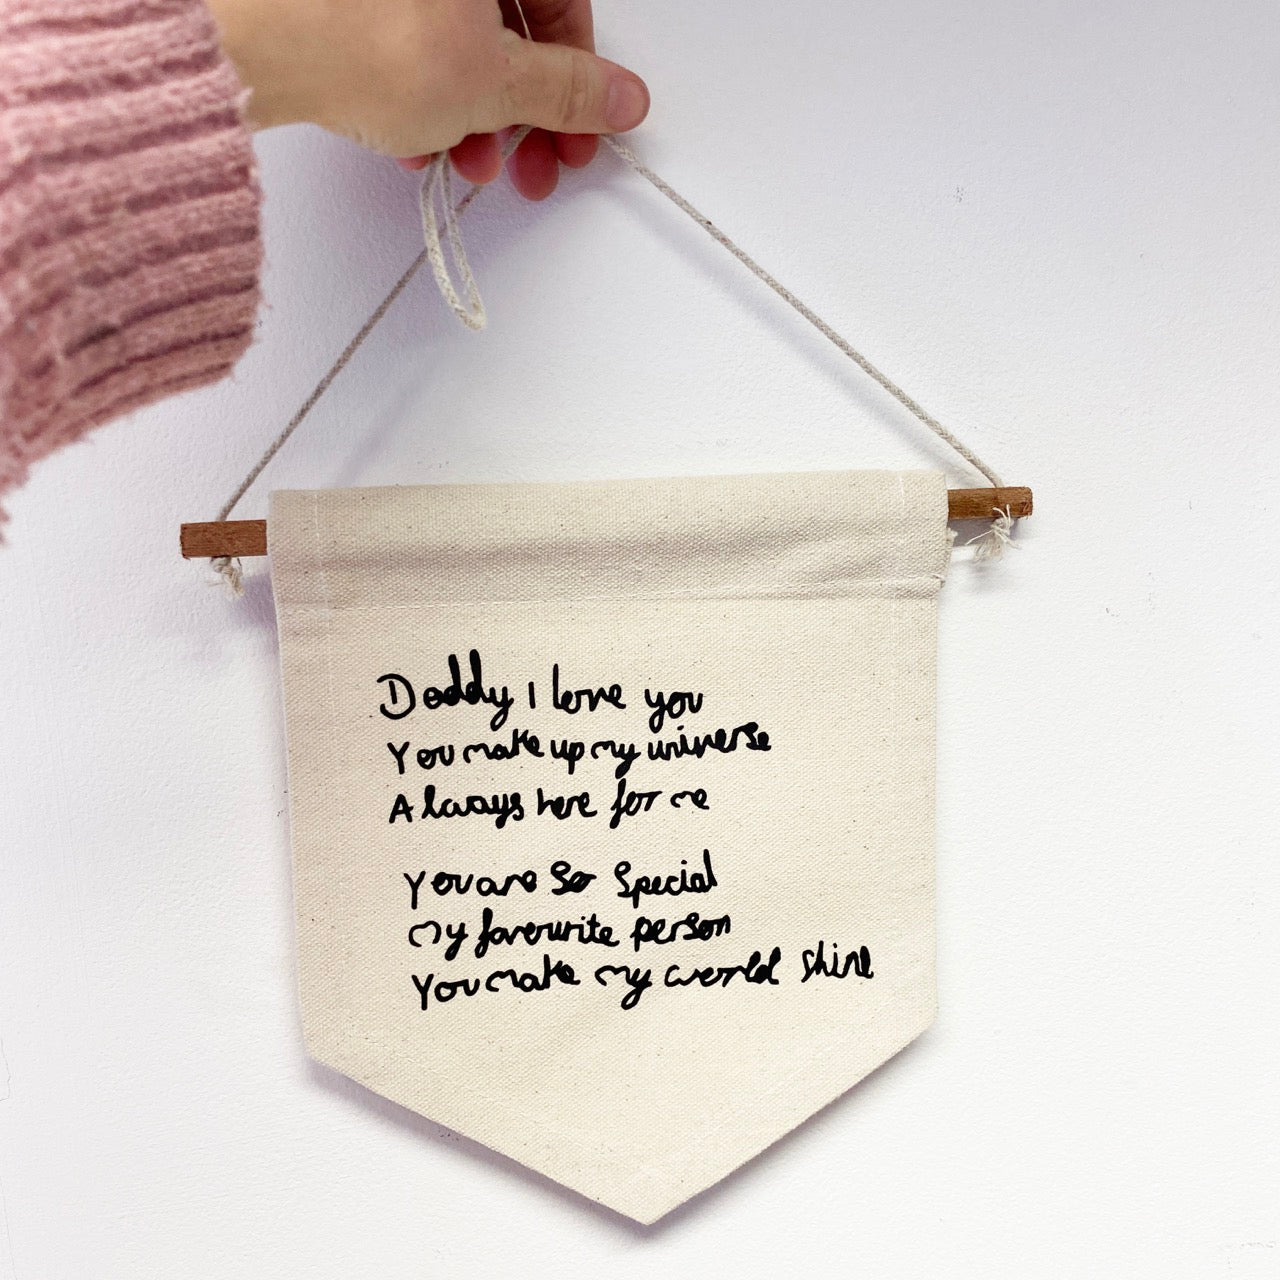 Daddy I love you
You make up my universe
Always here for me
You are so special
my favourite person
You make my world shine